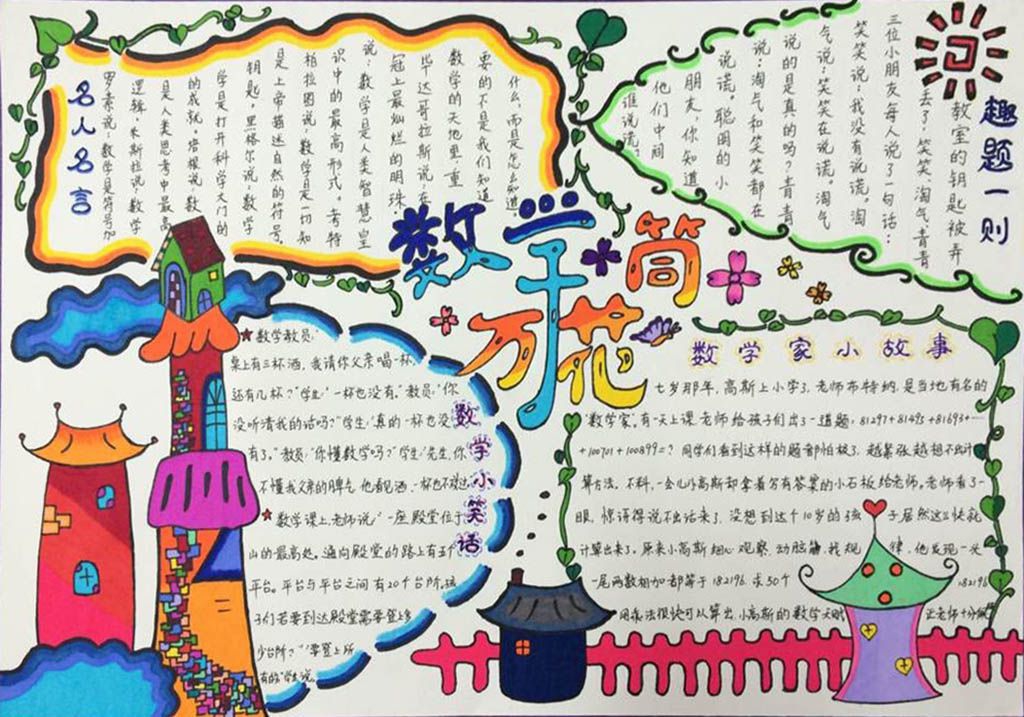 名人名言
罗素说:数学是符号加
逻辑,米斯拉说:数学
是人类思考中最高
的成就。培根说:数
学是打开科学大门的
钥匙。黑格尔说:数学
是上帝描述自然的符号。
柏拉图说:数学是一切知
识中的最高形式。考特
说:数学是人类智慧皇
冠上最灿烂的明珠
毕达哥拉斯说:在
数学的天地里,重
要的不是我们知道
什么,而是怎么知道。
趣题一则
教室的钥匙被弄
丢了,笑笑、淘气、青青
三位小朋友每人说了一句话:
笑笑说:我没有说谎。淘
气说:笑笑在说谎。淘气
说的是真的吗?青青
说:淘气和笑笑都在
说谎。聪明的小
朋友,你知道
他们中间
谁说谎
数学万花筒
数学小笑话
★数学教员:
桌上有三杯酒,我请你父亲喝一杯,
还有几杯?"学生:"一杯也没有。"教员:"你
没听清我的话吗?"学生:"真的一杯也没
有了。"教员:"你懂数学吗?"学生:"先生,你
不懂我父亲的脾气,他看见酒,一杯也不放过。
★数学课上,老师说:"一座殿堂位于
山的最高处。通向殿堂的路上有五个
平台。平台与平台之间有20个台阶,孩
子们若要到达殿堂需要登上多
少台阶?""要登上所
有的"学生说
数学家小故事
七岁那年,高斯上小学了,老师布特纳,是当地有名的
"数学家"。有一天上课老师给孩子们出了一道题:81297+81495+81693+……
+100701+100899=?同学们看到这样的题都怕极了,越紧张越想不出计
算方法,不料,一会儿小高斯却拿着写有答案的小石板给老师。老师看了一
眼,惊讶得说不出话来了,没想到这个10岁的孩子居然这么快就
计算出来了。原来小高斯细心观察,动脑筋,找规律,他发现一头
一尾两数相加都等于182196,求50个182196
用乘法很快可以算出,小高斯的数学天赋让老师十分佩